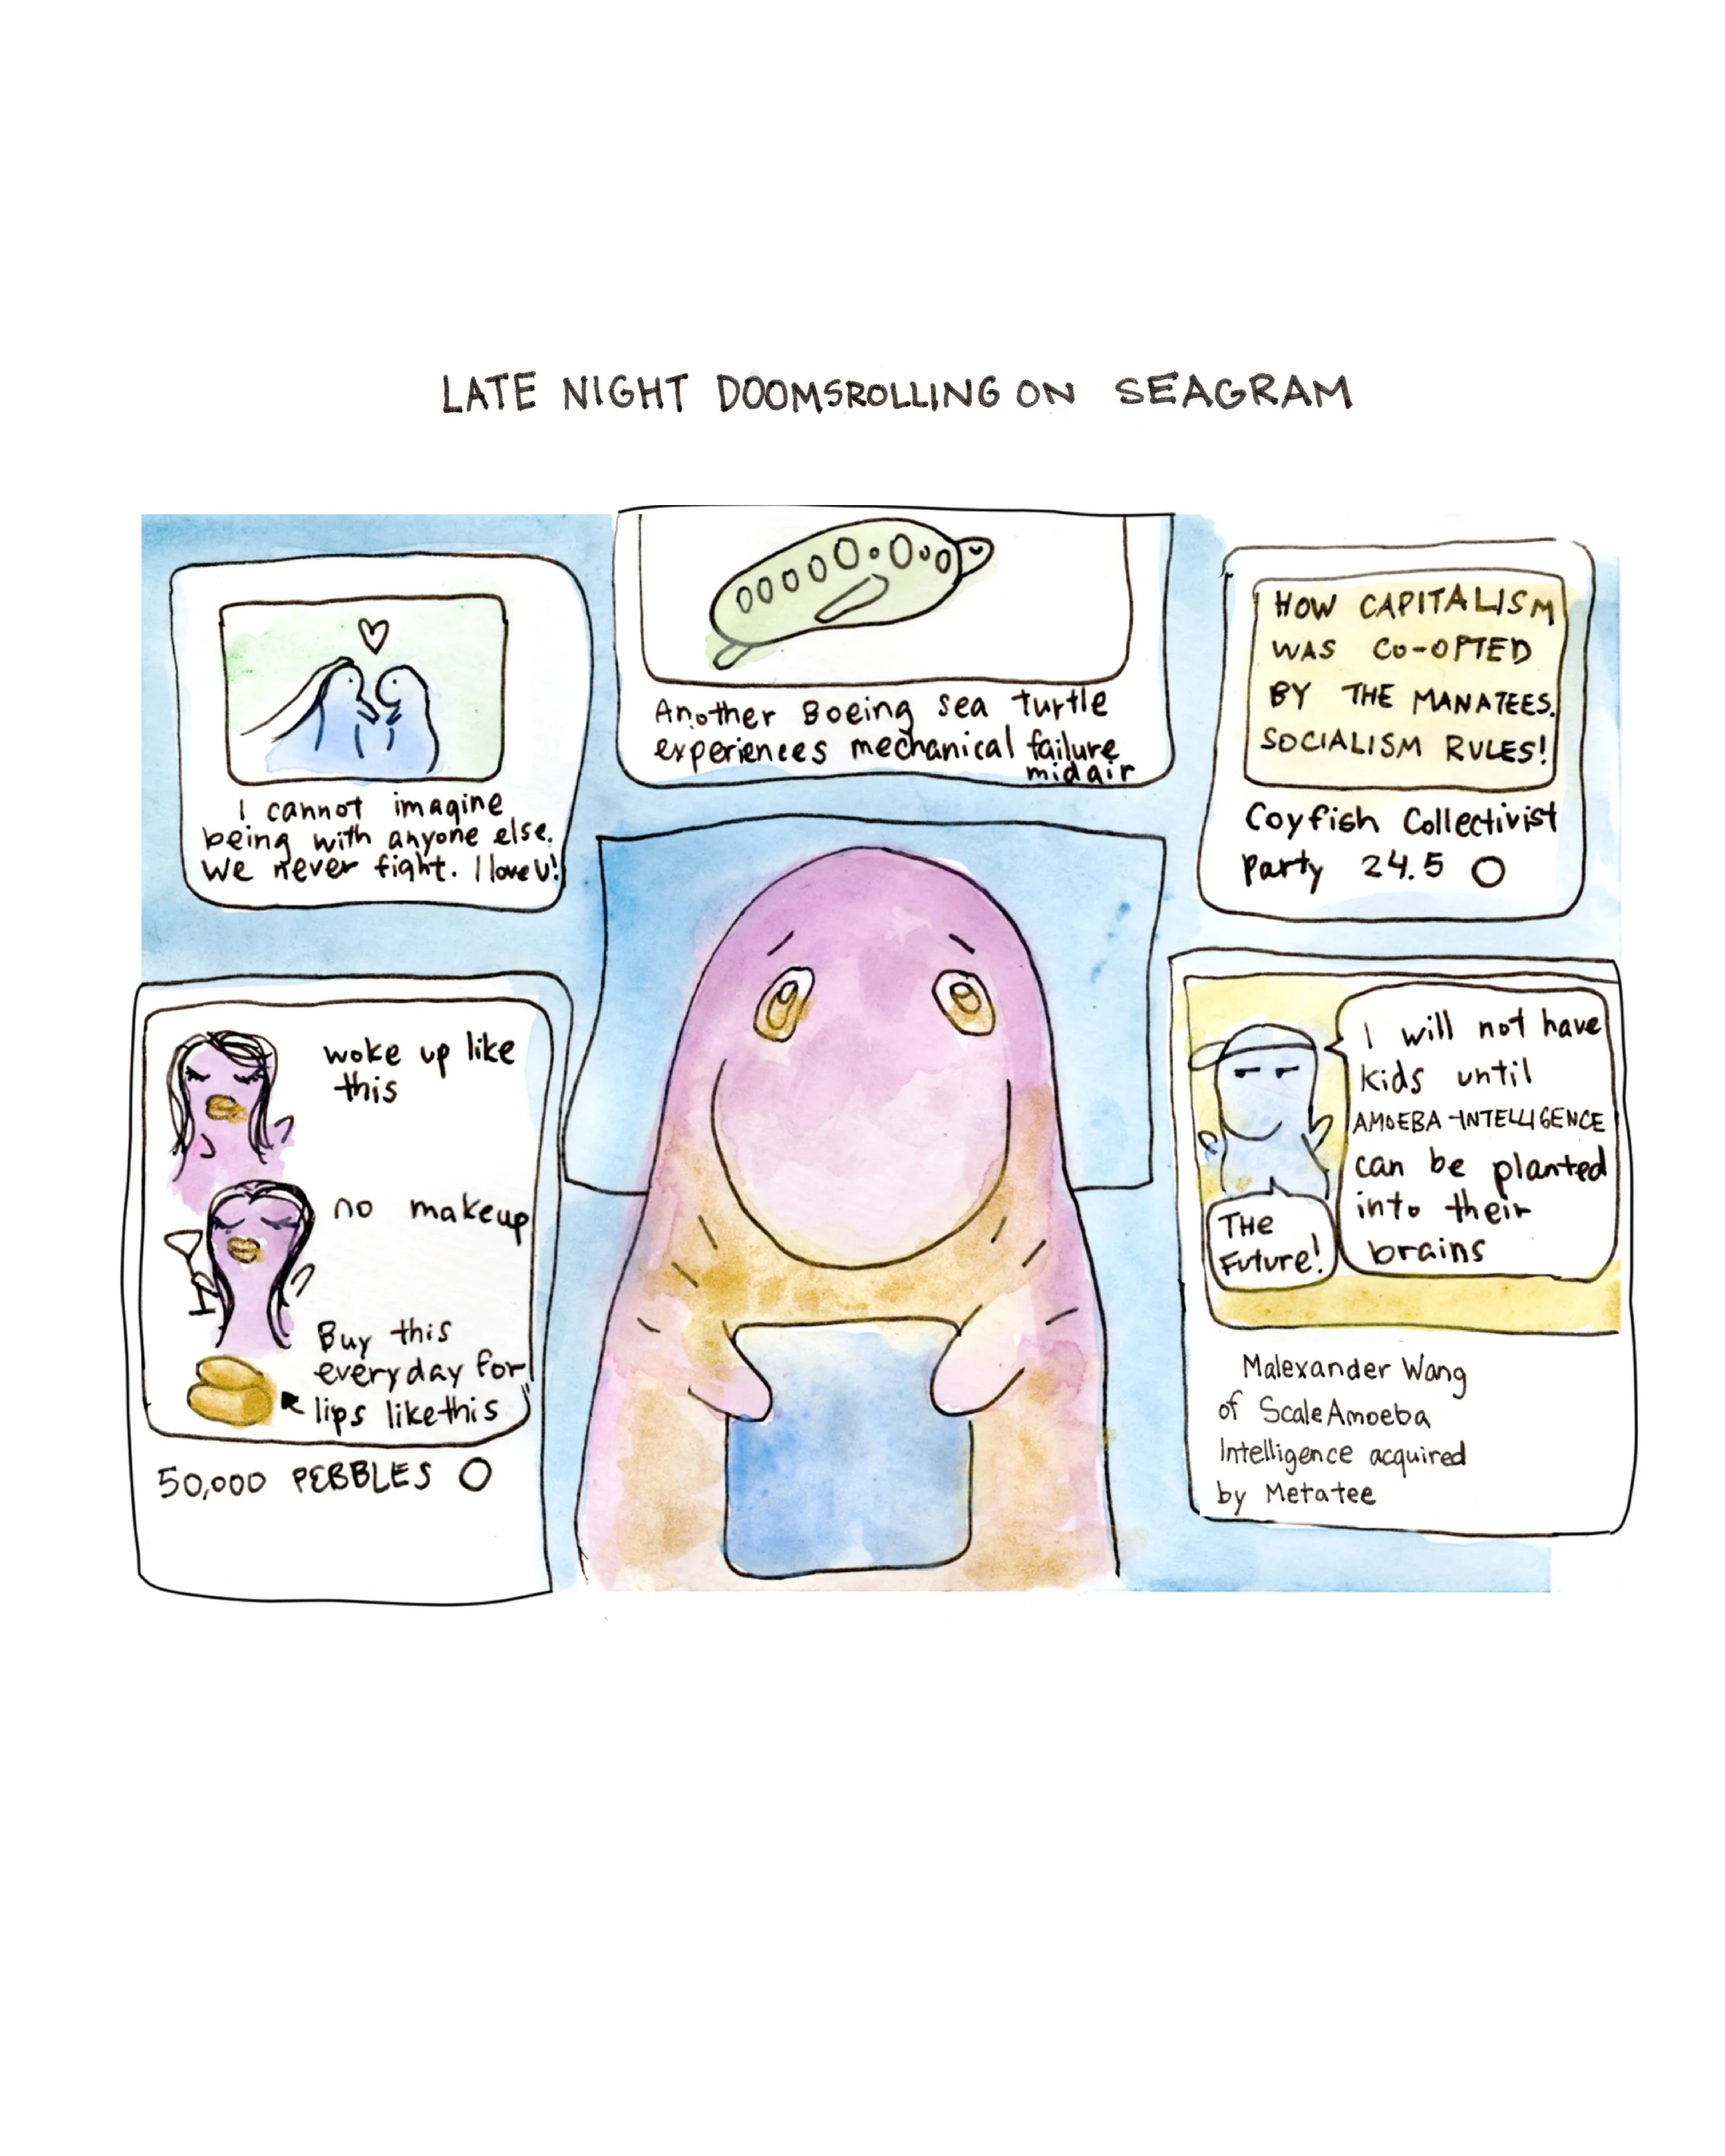 LATE NIGHT DOOMSROLLING ON SEAGRAM
I cannot imagine
being with anyone else.
We never fight. I love U!
Another Boeing sea turtle
experiences mechanical failure
midair
HOW CAPITALISM
WAS CO-OPTED
BY THE MANATEES.
SOCIALISM RULES!
Coyfish Collectivist
Party 24.5
woke up like
this
no makeup
Buy this
everyday for
lips like this
50,000 PEBBLES
I will not have
kids until
AMOEBA-INTELLIGENCE
can be planted
into their
brains
THE
Future!
Malexander Wang
of ScaleAmoeba
Intelligence acquired
by Metatee